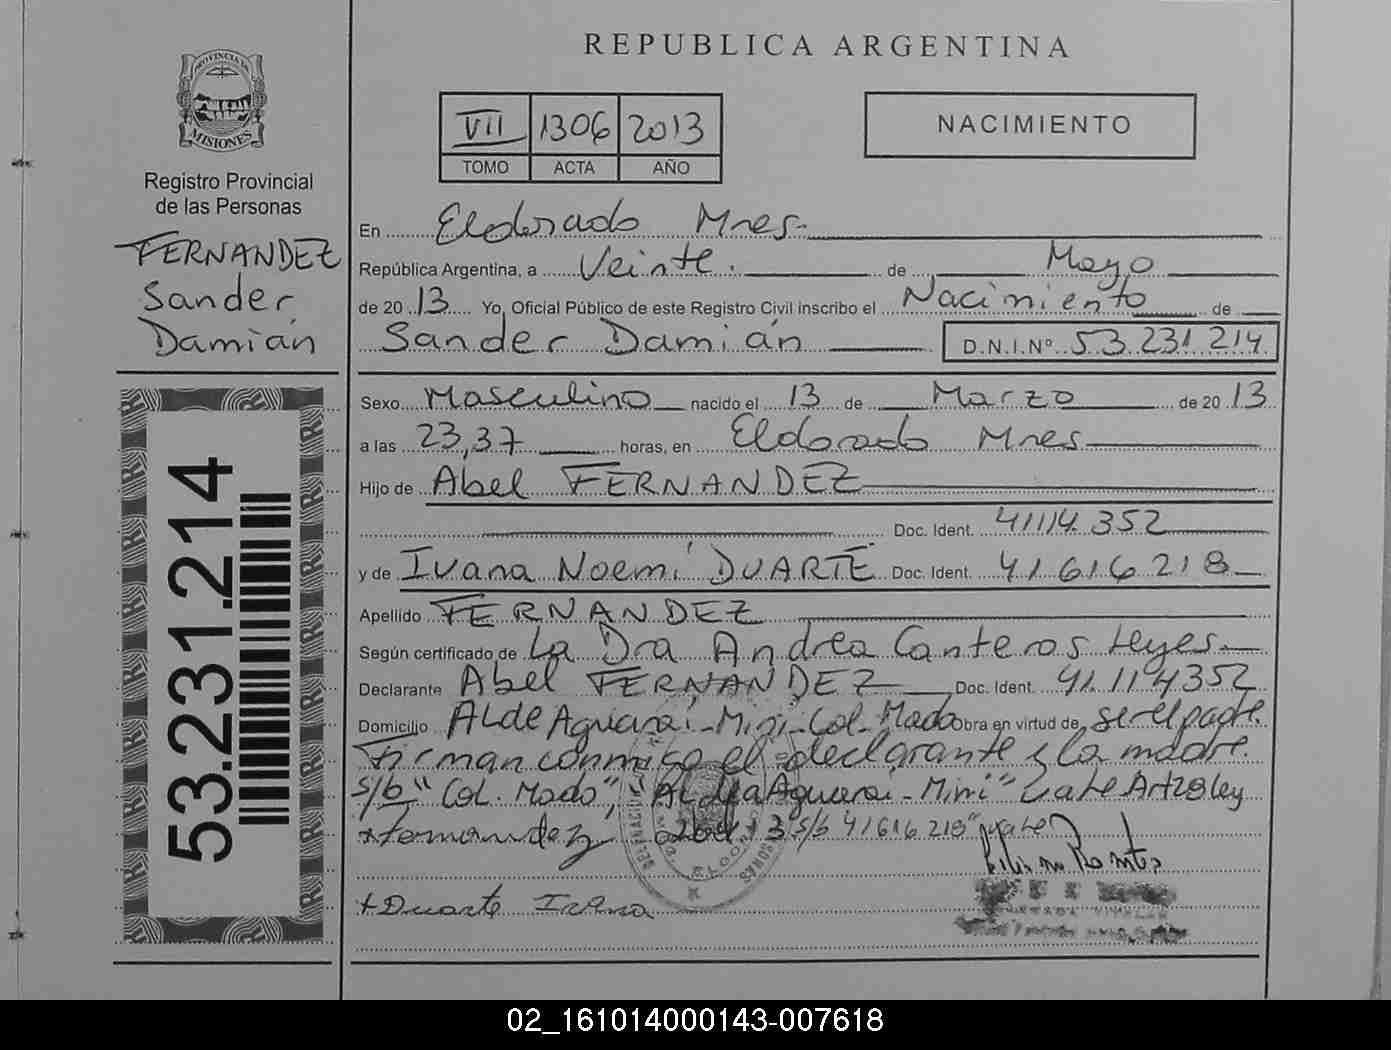 REPUBLICA ARGENTINA
PROVINCIA DE
MISIONES
Registro Provincial
de las Personas
FERNANDEZ
Sander
Damián
53.231.214
VII 1306 2013
TOMO ACTA AÑO
NACIMIENTO
En Eldorado Mnes.
República Argentina, a Veinte. de Mayo
de 20 13 Yo, Oficial Público de este Registro Civil inscribo el Nacimiento de
Sander Damián D.N.I.Nº 53.231.214
Sexo Masculino nacido el 13 de Marzo de 20 13
a las 23,37 horas, en Eldorado Mnes
Hijo de Abel FERNANDEZ
Doc. Ident. 41.114.352
y de Ivana Noemí DUARTE Doc. Ident. 41.616.218
Apellido FERNANDEZ
Según certificado de La Dra Andrea Canteros Leyes
Declarante Abel FERNANDEZ Doc. Ident. 41.114352
Domicilio ALde Aguaraí-Mini-Col. Mado Obra en virtud de ser el padre
Firman conmigo el declarante y la madre.
s/b "Col. Mado", "Aldea Aguaraí-Mini" Vale Art 28 ley
Fernandez Abel 3 s/b 41616218" Vale
Duarte Ivana
02_161014000143-007618